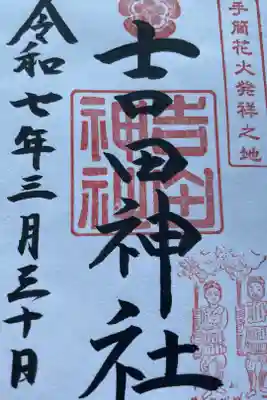 手筒花火発祥之地
吉田神社
吉田
神社
令和七年三月三十日